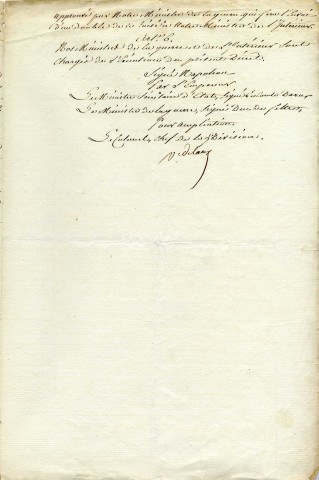 approuvé par Notre Ministre de la guerre qui fera l'Envoi
d'un double de ce Procès à Notre Ministre de l'Intérieur
Art. 6.
Nos Ministres de la guerre et de l'Intérieur sont
chargés de l'Exécution du présent Décret.
Signé Napoléon
Par l'Empereur
Le Ministre Secrétaire d'Etat, Signé Comte Daru
Le Ministre de la guerre, Signé Duc de Feltre,
Pour ampliation
Le Colonel, chef de la Division